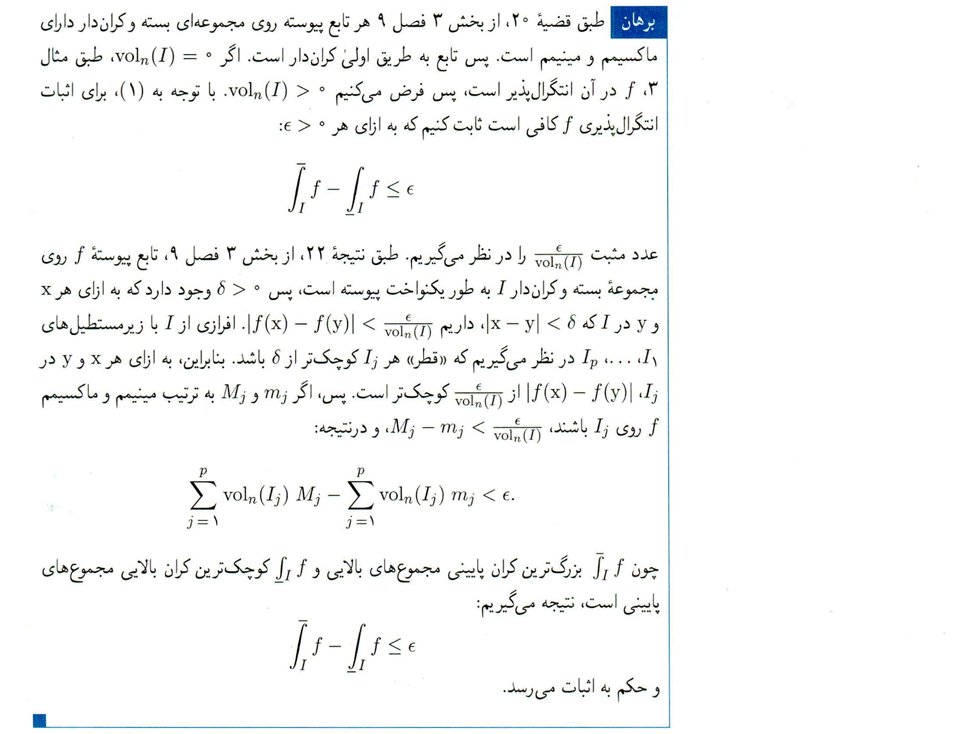 برهان طبق قضیهٔ ۲۰، از بخش ۳ فصل ۹ هر تابع پیوسته روی مجموعه‌ای بسته و کران‌دار دارای
ماکسیمم و مینیمم است. پس تابع به طریق اولیٰ کران‌دار است. اگر volₙ(I) = ۰، طبق مثال
۳، f در آن انتگرال‌پذیر است، پس فرض می‌کنیم volₙ(I) > ۰. با توجه به (۱)، برای اثبات
انتگرال‌پذیری f کافی است ثابت کنیم که به ازای هر ϵ > ۰:
∫̄_I f − ∫̲_I f ≤ ϵ
عدد مثبت ϵ/volₙ(I) را در نظر می‌گیریم. طبق نتیجهٔ ۲۲، از بخش ۳ فصل ۹، تابع پیوستهٔ f روی
مجموعهٔ بسته و کران‌دار I به طور یکنواخت پیوسته است، پس δ > ۰ وجود دارد که به ازای هر x
و y در I که |x − y| < δ، داریم |f(x) − f(y)| < ϵ/volₙ(I). افرازی از I با زیرمستطیل‌های
I₁، ...، Iₚ در نظر می‌گیریم که «قطر» هر Iⱼ کوچک‌تر از δ باشد. بنابراین، به ازای هر x و y در
Iⱼ، |f(x) − f(y)| از ϵ/volₙ(I) کوچک‌تر است. پس، اگر mⱼ و Mⱼ به ترتیب مینیمم و ماکسیمم
f روی Iⱼ باشند، Mⱼ − mⱼ < ϵ/volₙ(I)، و درنتیجه:
∑_{j=۱}^{p} volₙ(Iⱼ) Mⱼ − ∑_{j=۱}^{p} volₙ(Iⱼ) mⱼ < ϵ.
چون ∫̄_I f بزرگ‌ترین کران پایینی مجموع‌های بالایی و ∫̲_I f کوچک‌ترین کران بالایی مجموع‌های
پایینی است، نتیجه می‌گیریم:
∫̄_I f − ∫̲_I f ≤ ϵ
و حکم به اثبات می‌رسد.